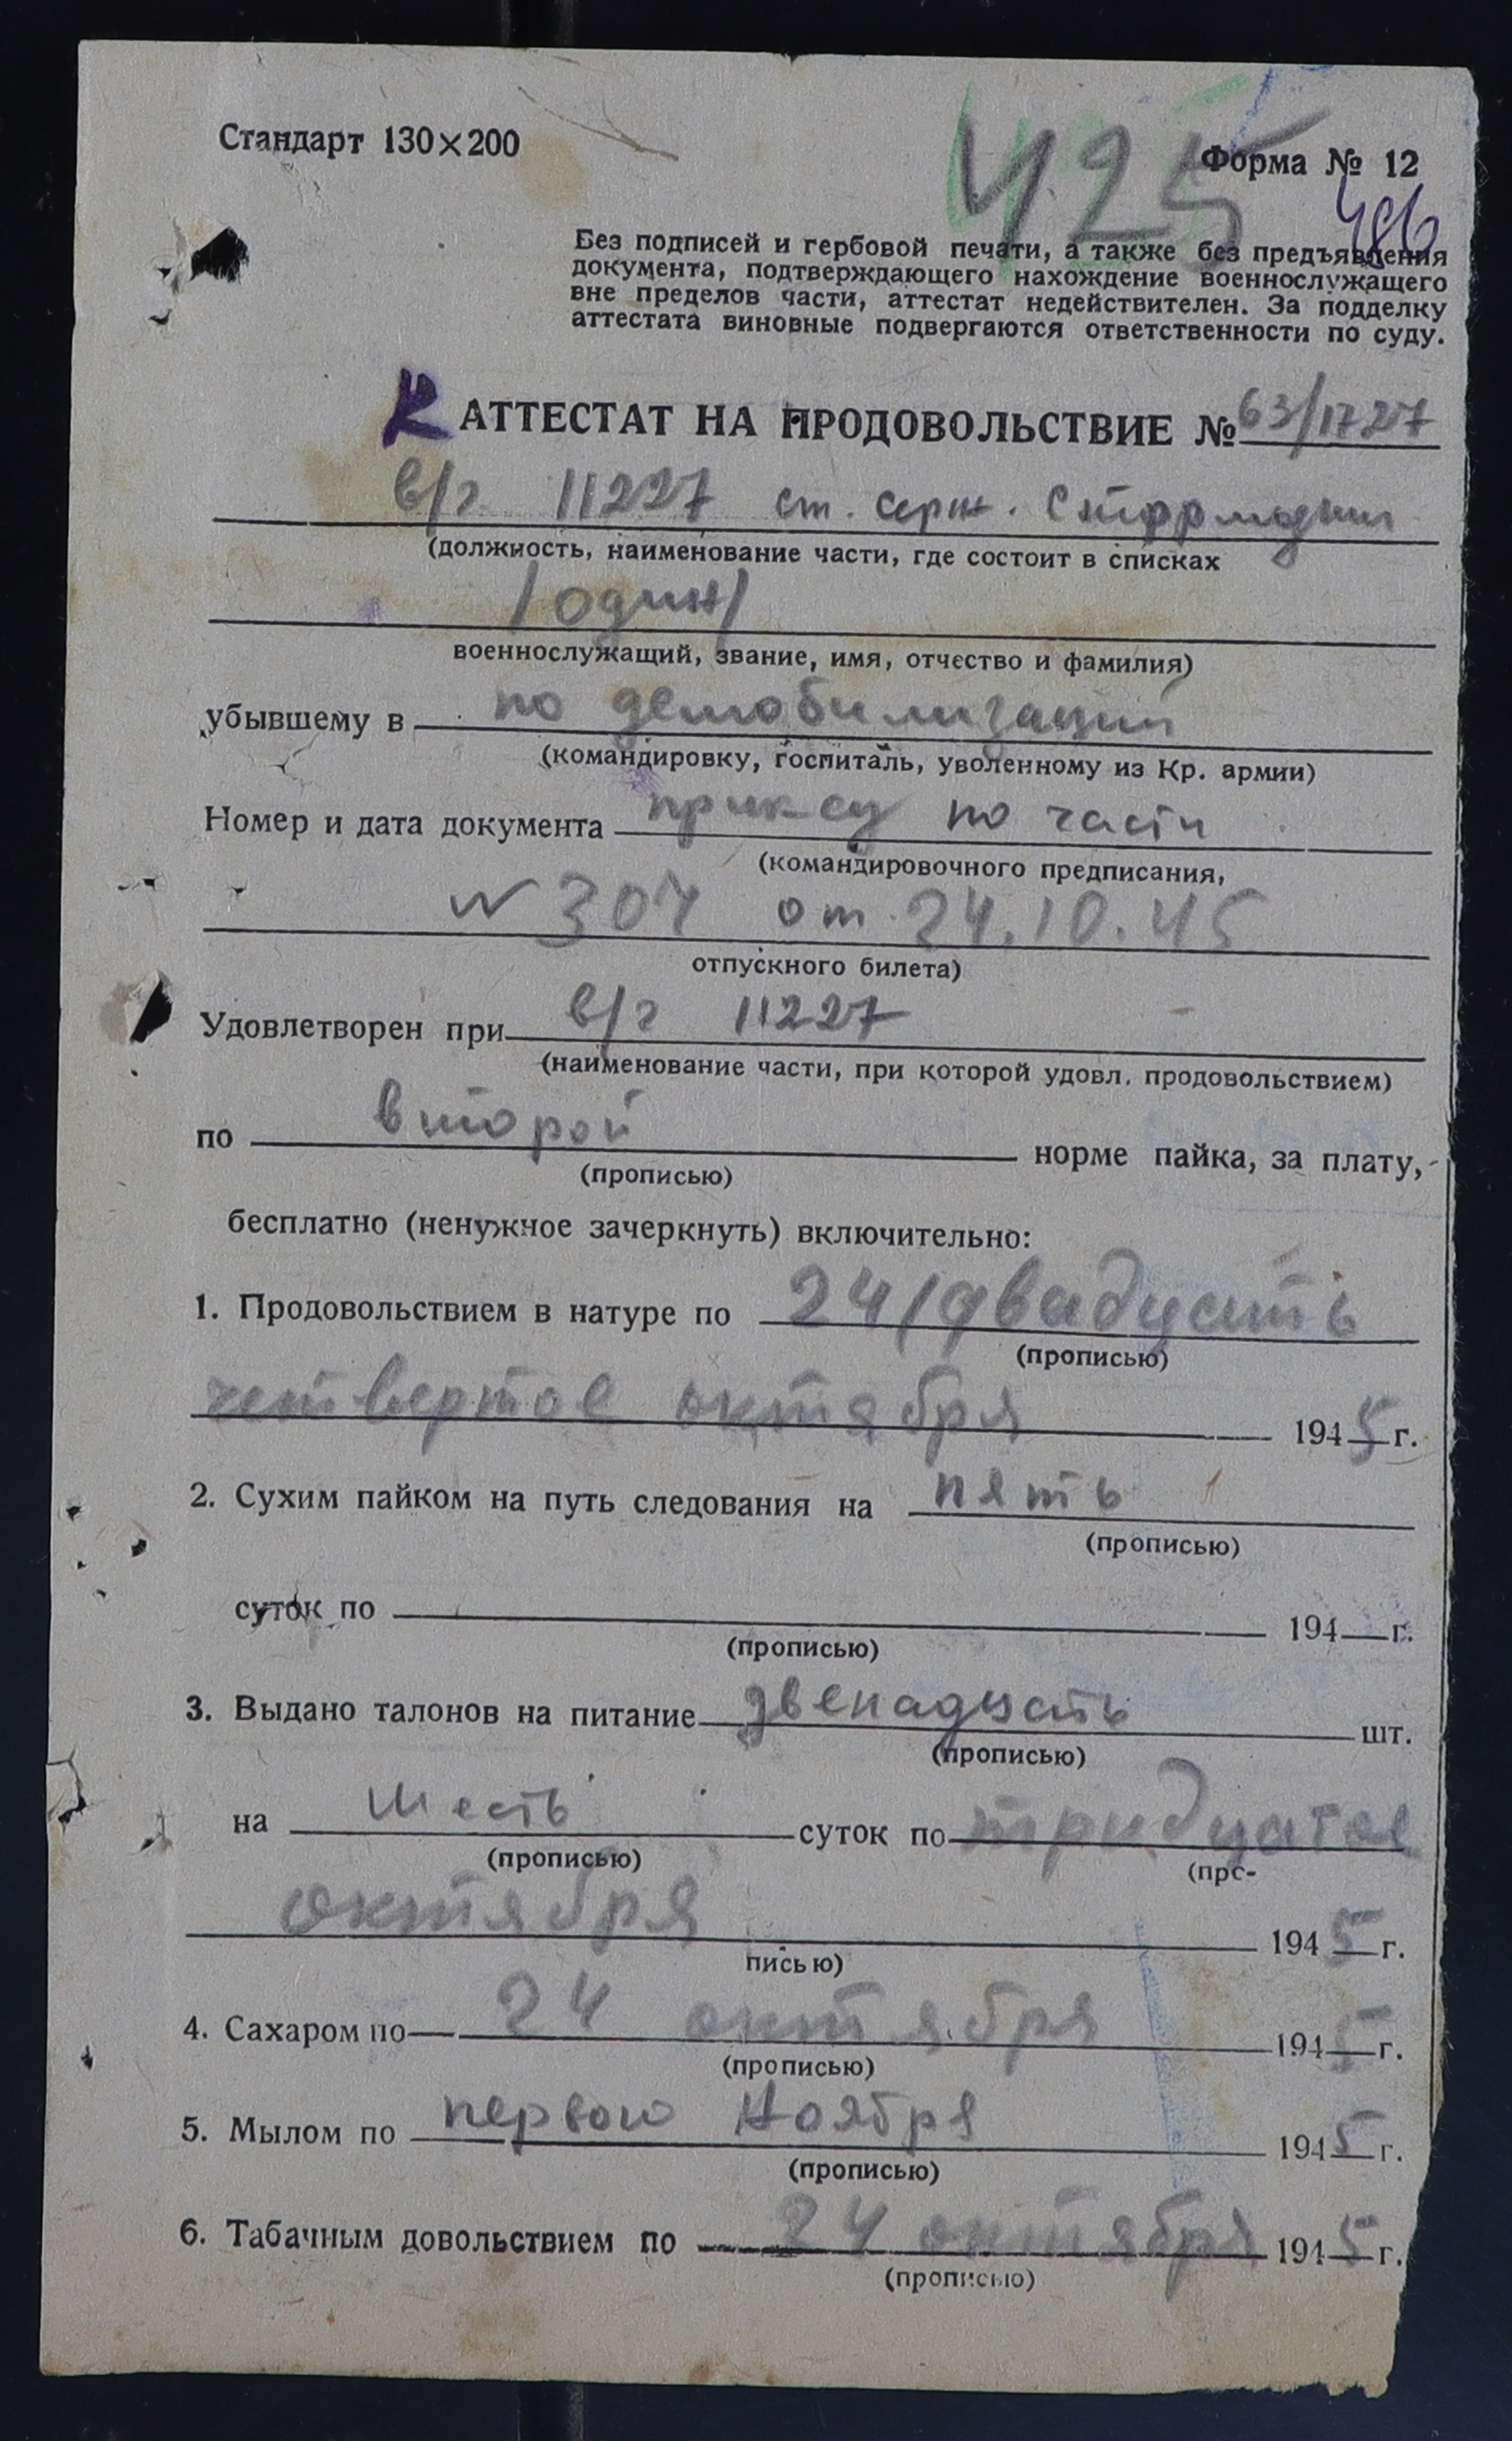 425
Стандарт 130×200
Форма № 12
486
Без подписей и гербовой печати, а также без предъявления
документа, подтверждающего нахождение военнослужащего
вне пределов части, аттестат недействителен. За подделку
аттестата виновные подвергаются ответственности по суду.
К АТТЕСТАТ НА ПРОДОВОЛЬСТВИЕ № 63/1727
в/ч 11227 ст. серж.
(должность, наименование части, где состоит в списках
/один/
военнослужащий, звание, имя, отчество и фамилия)
убывшему в по демобилизации
(командировку, госпиталь, уволенному из Кр. армии)
Номер и дата документа по части
(командировочного предписания,
№ 307 от 24.10.45
отпускного билета)
Удовлетворен при в/ч 11227
(наименование части, при которой удовл. продовольствием)
по второй норме пайка, за плату,
(прописью)
бесплатно (ненужное зачеркнуть) включительно:
1. Продовольствием в натуре по 24/двадцать
(прописью)
четвертое октября 1945 г.
2. Сухим пайком на путь следования на пять
(прописью)
суток по 194 г.
(прописью)
3. Выдано талонов на питание двенадцать шт.
(прописью)
на шесть суток по тридцатое
(прописью) (про-
октября 1945 г.
писью)
4. Сахаром по 24 октября 1945 г.
(прописью)
5. Мылом по первою ноября 1945 г.
(прописью)
6. Табачным довольствием по 24 октября 1945 г.
(прописью)